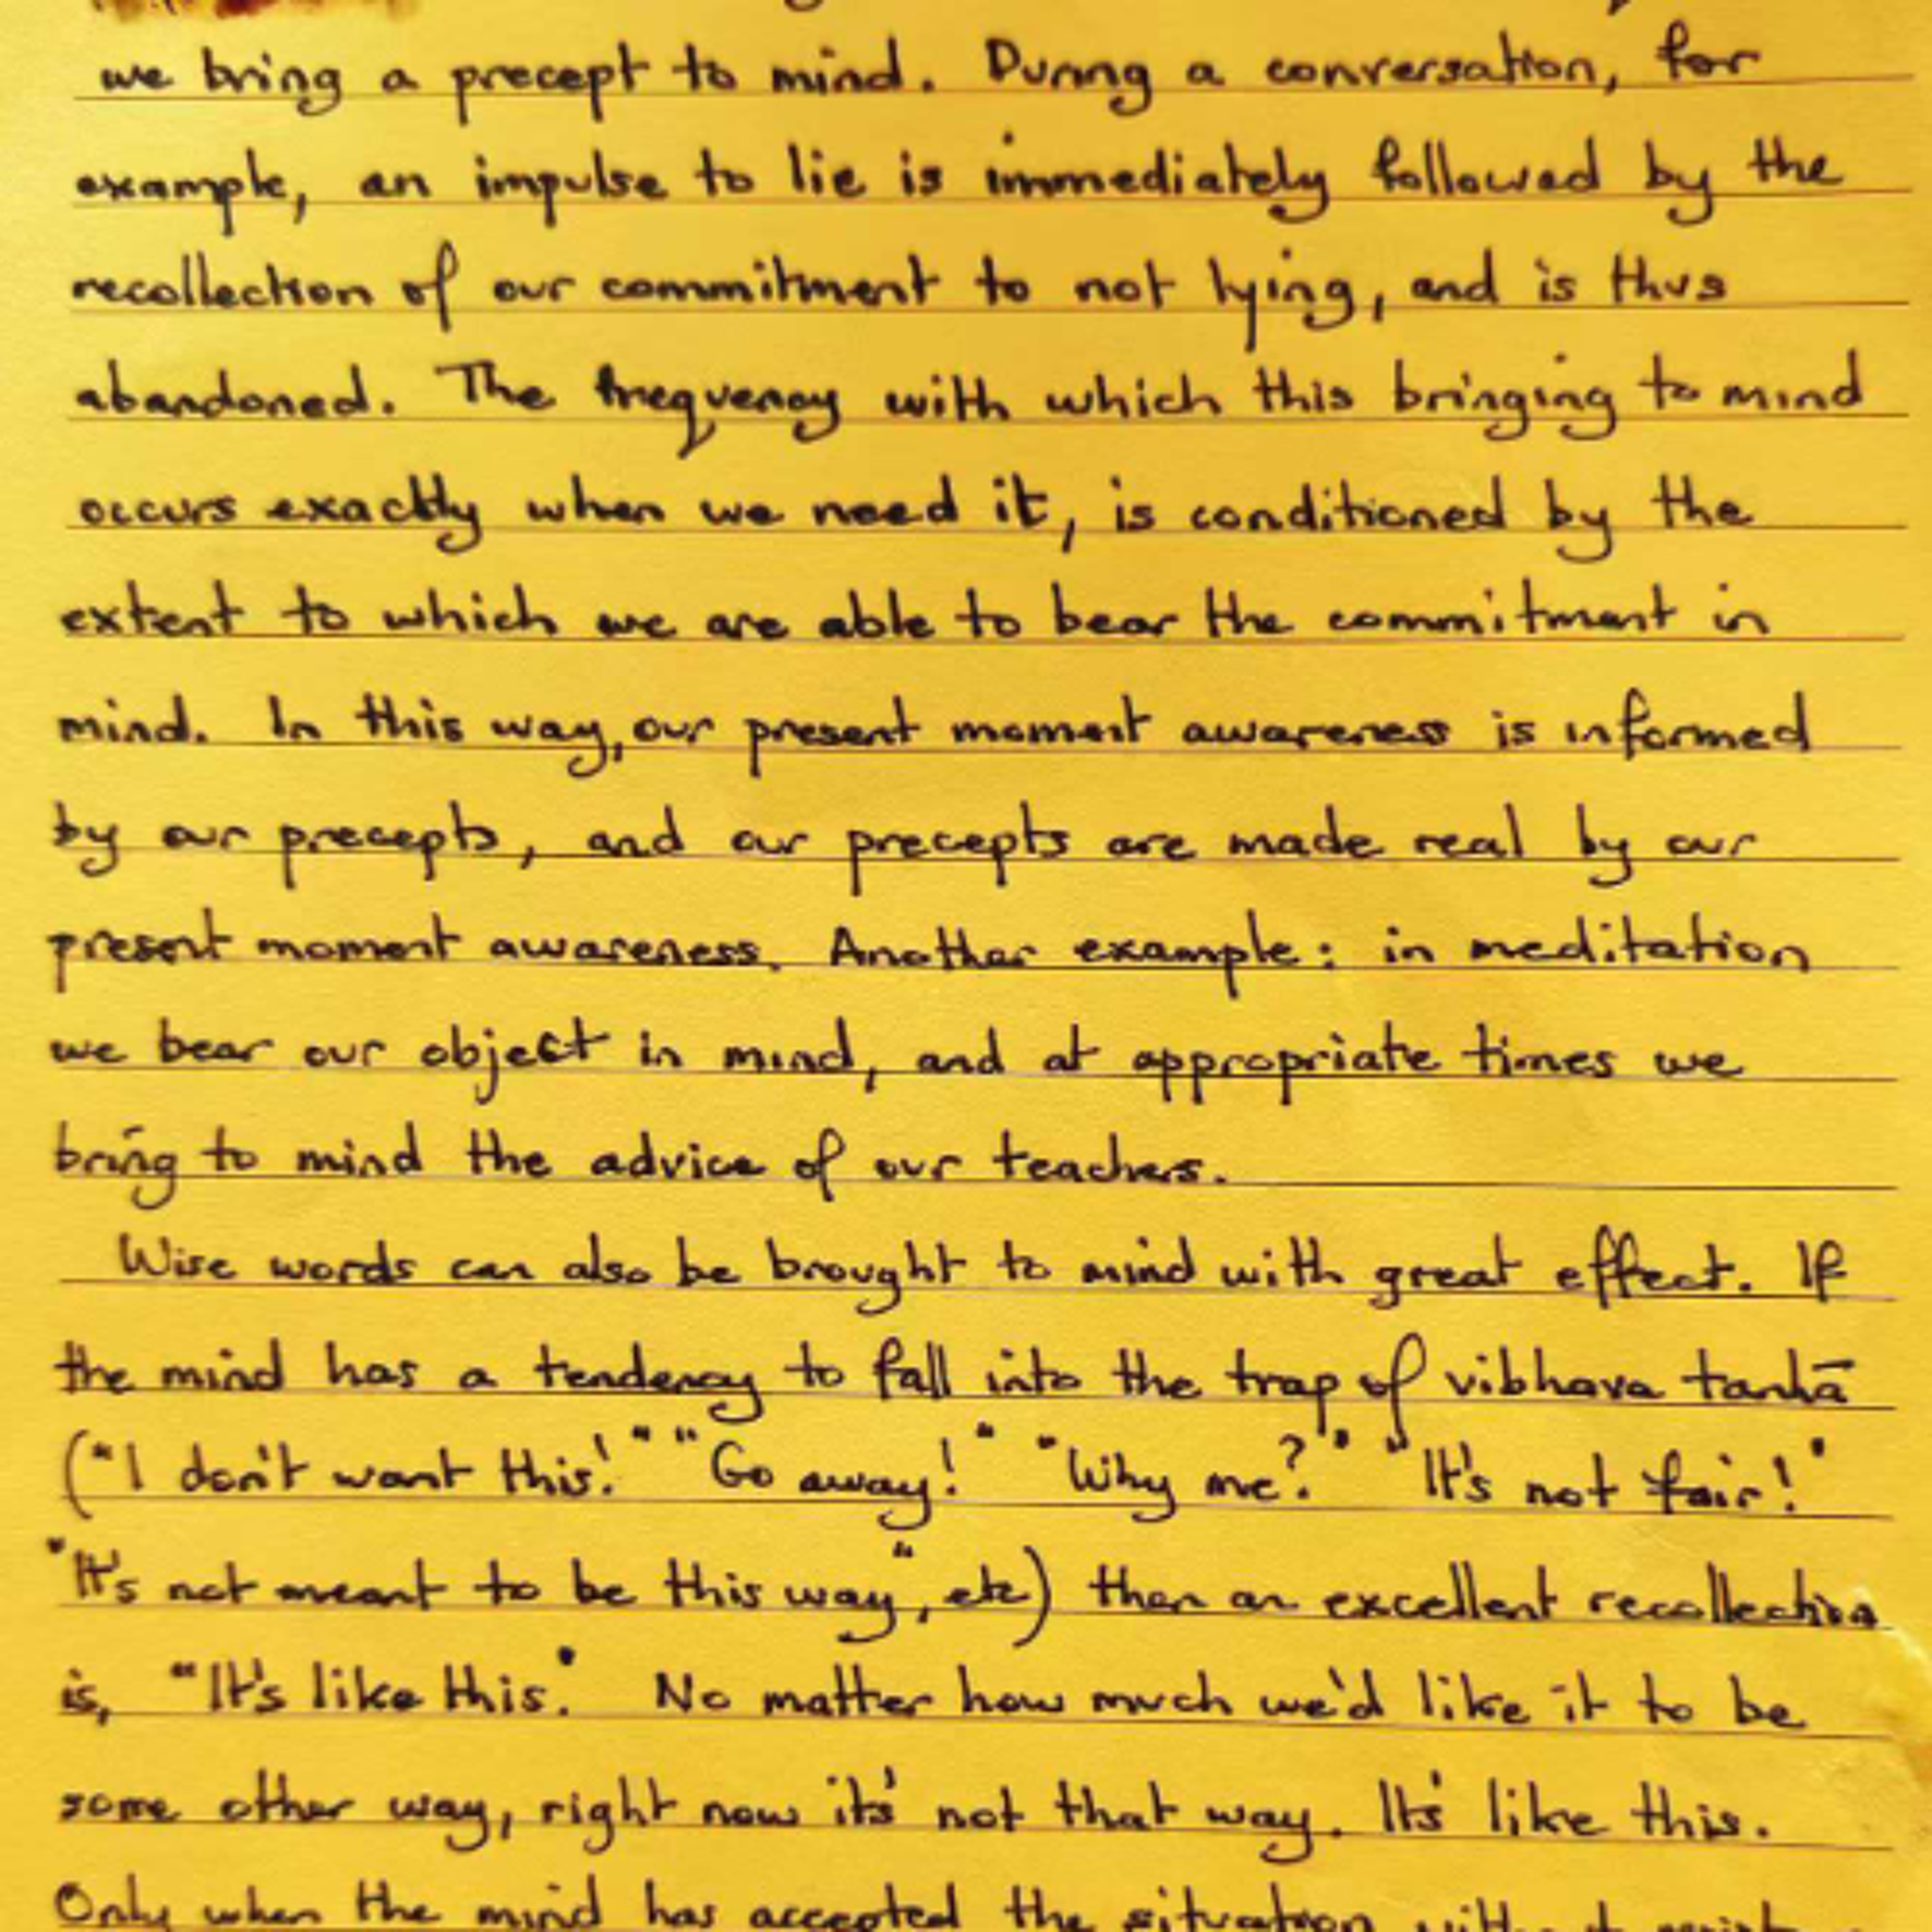 we bring a precept to mind. During a conversation, for
example, an impulse to lie is immediately followed by the
recollection of our commitment to not lying, and is thus
abandoned. The frequency with which this bringing to mind
occurs exactly when we need it, is conditioned by the
extent to which we are able to bear the commitment in
mind. In this way, our present moment awareness is informed
by our precepts, and our precepts are made real by our
present moment awareness. Another example: in meditation
we bear our object in mind, and at appropriate times we
bring to mind the advice of our teachers.
Wise words can also be brought to mind with great effect. If
the mind has a tendency to fall into the trap of vibhava tanhā
("I don't want this!" "Go away!" "Why me?" "It's not fair!"
"It's not meant to be this way", etc) then an excellent recollection
is, "It's like this." No matter how much we'd like it to be
some other way, right now it's not that way. It's like this.
Only when the mind has accepted the situation without